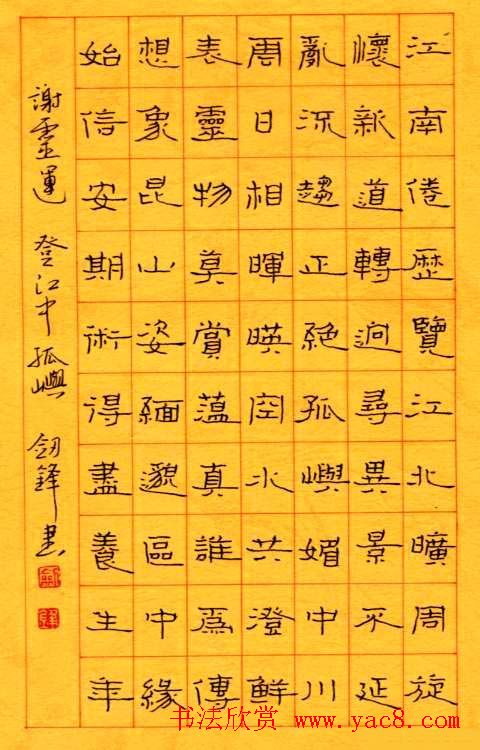 江南倦歷覽江北曠周旋
懷新道轉迥尋異景不延
亂流趨正絕孤嶼媚中川
雲日相暉暎空水共澄鮮
表靈物莫賞薀真誰爲傳
想象昆山姿緬邈區中緣
始信安期術得盡養生年
謝靈運 登江中孤嶼 劍鋒書
书法欣赏 www.yac8.com